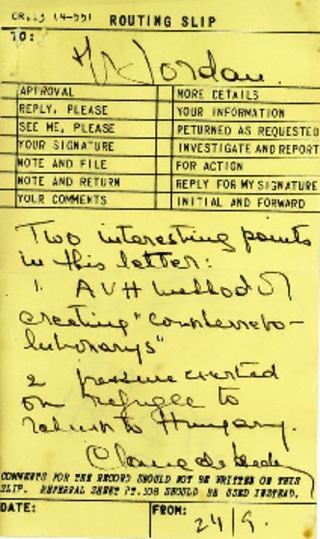 CR.13 (4-55)
ROUTING SLIP
TO:
Mr Jordan.
APPROVAL
MORE DETAILS
REPLY, PLEASE
YOUR INFORMATION
SEE ME, PLEASE
RETURNED AS REQUESTED
YOUR SIGNATURE
INVESTIGATE AND REPORT
NOTE AND FILE
FOR ACTION
NOTE AND RETURN
REPLY FOR MY SIGNATURE
YOUR COMMENTS
INITIAL AND FORWARD
Two interesting points
in this letter:
1. AVH method of
creating "counterrevo-
lutionarys"
2 pressure exerted
on refugee to
return to Hungary.
Claire de
COMMENTS FOR THE RECORD SHOULD NOT BE WRITTEN ON THIS
SLIP. REFERRAL SHEET PT.108 SHOULD BE USED INSTEAD.
DATE:
FROM:
24/9.